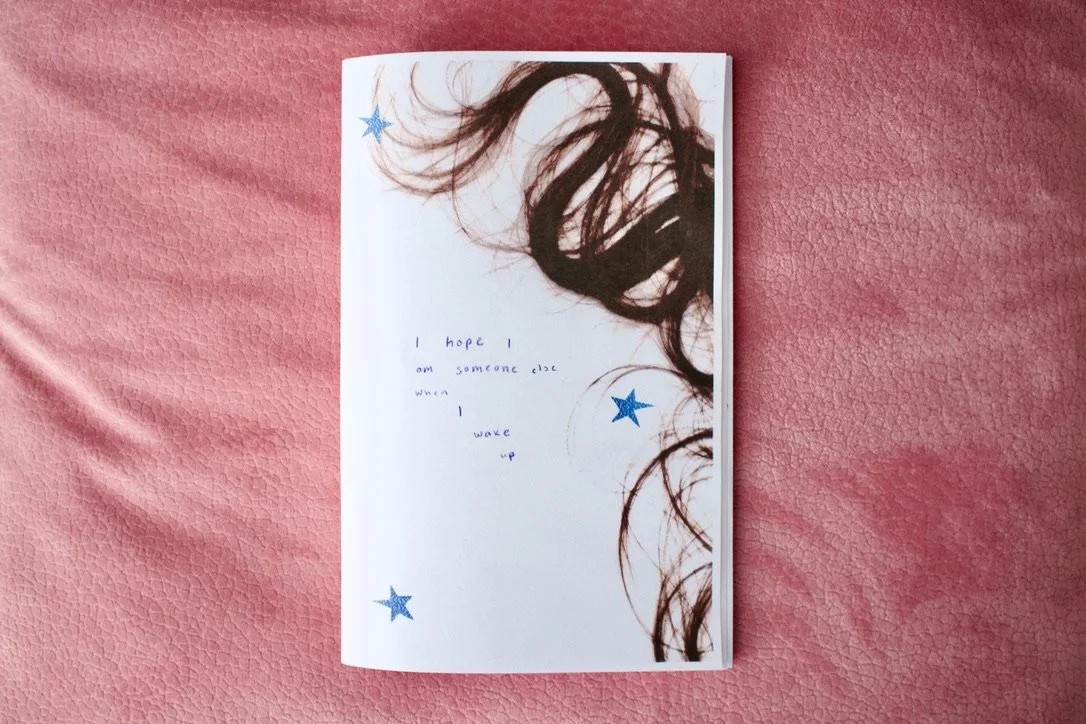 I hope I
am someone else
when
I
wake
up